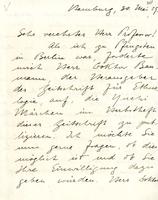 Hamburg, 20. Mai 19
Sehr verehrter Herr Professor!
Als ich zu Pfingsten
in Berlin war, forderte
mich Herr Doktor Bau-
mann, der Herausgeber
der Zeitschrift für Ethno-
logie auf, die Yuchi
Märchen im
dieser Zeitschrift zu pub-
lizieren. Ich möchte Sie
nun gerne fragen, ob dies
möglich ist und ob Sie
Ihre Einwilligung dazu
geben würden. Herr Doktor